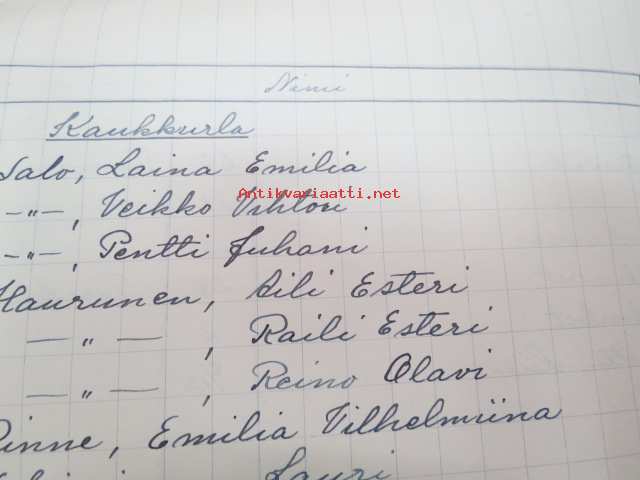 Nimi
Kaukkurla
Salo, Laina Emilia
Antikvariaatti.net
—"—, Veikko Vihtori
—"—, Pentti Juhani
Haurunen, Aili Esteri
—"—, Raili Esteri
—"—, Reino Olavi
Rinne, Emilia Vilhelmiina
Lauri